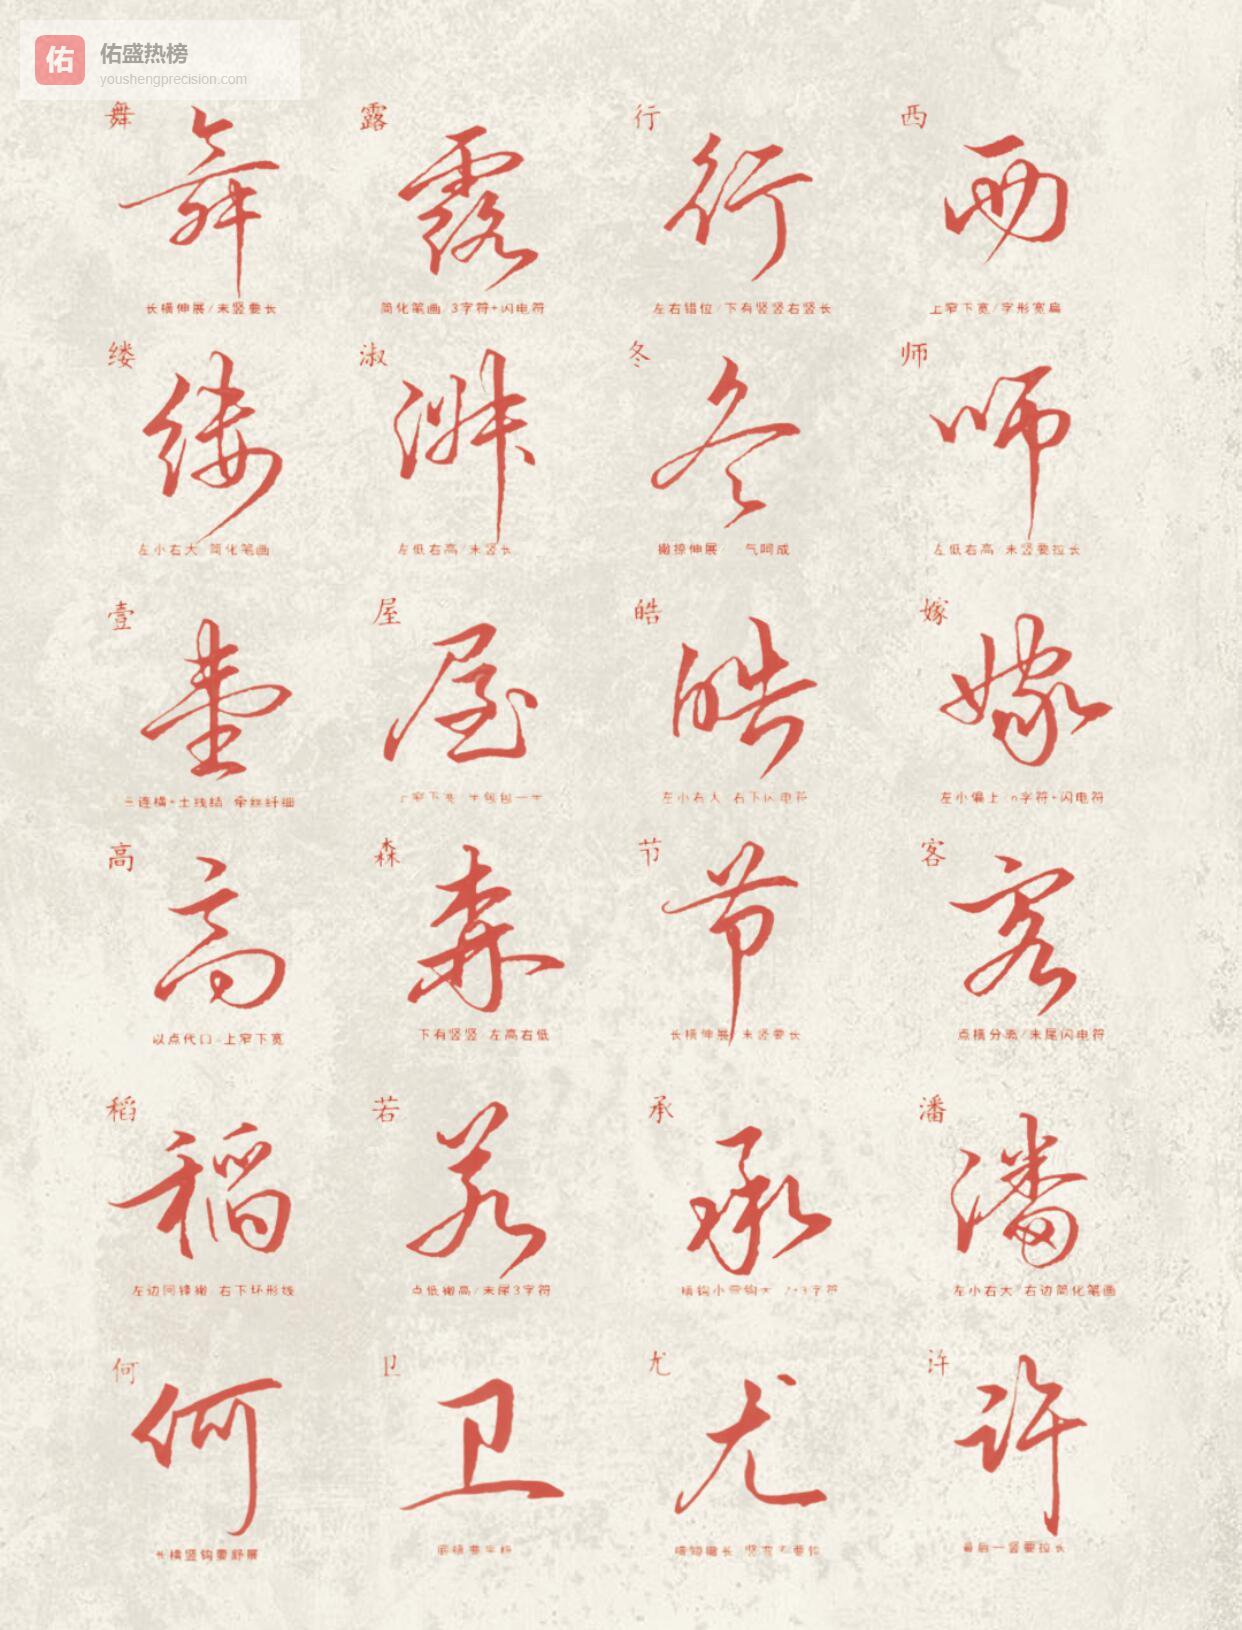 佑
佑盛热榜
youshengprecision.com
舞 露 行 西
舞 露 行 西
长横伸展/末竖要长
简化笔画/3字符+闪电符
左右错位/下有竖竖右竖长
上窄下宽/字形宽扁
缕 淑 冬 师
缕 淑 冬 师
左小右大 简化笔画
左低右高/末竖长
撇捺伸展/ 气呵成
左低右高/末竖要拉长
壹 屋 皓 嫁
壹 屋 皓 嫁
连横+土线结/牵丝纤细
窄下宽
左小右大 右下闪电符
左小偏上/n字符+闪电符
高 森 节 客
高 森 节 客
以点代口-上窄下宽
下有竖竖 左高右低
长横伸展/末竖要长
点横分离/末尾闪电符
稻 若 承 潘
稻 若 承 潘
左边回锋撇 右下环形线
点低撇高/末尾3字符
横钩小弯钩大 3字符
左小右大/右边简化笔画
何 卫 尤 许
何 卫 尤 许
长横竖钩要舒展
底横要平稳
撇长
最后一竖要拉长